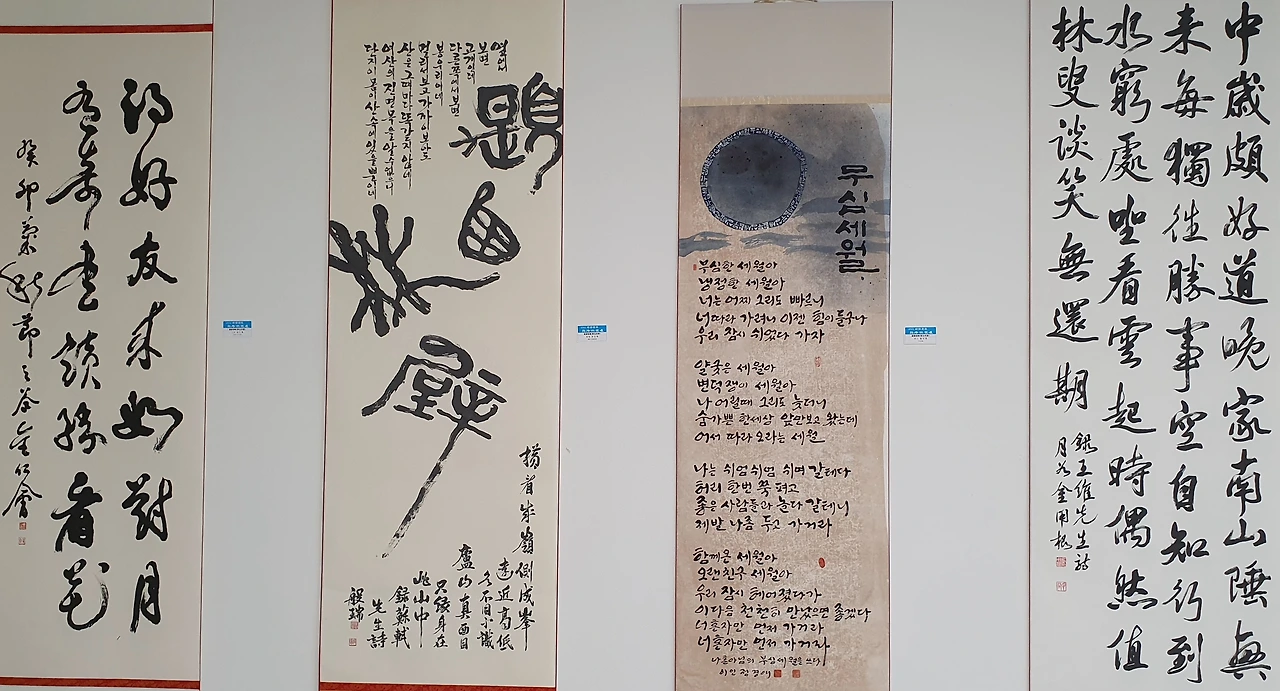 得好友来如對月
有奇書讀勝看花
癸卯菊秋節
옆에서
보면
고개이네
다른쪽에서보면
봉우리이네
멀리서보고가까이보아도
산은그때마다똑같지않네
여산의진면목을알수없으니
단지이몸이산속에있을뿐이네
題西林壁
橫看成嶺側成峯
遠近高低
各不同不識
廬山真面目
只緣身在
此山中
錄蘇軾
先生詩
무심세월
무심한 세월아
냉정한 세월아
너는 어찌 그리도 빠르니
너따라 가려니 이젠 힘이 들구나
우리 잠시 쉬었다 가자
얄궂은 세월아
변덕쟁이 세월아
나 어릴때 그리도 늦더니
숨가쁜 한세상 앞만보고 왔는데
어서 따라 오라는 세월
나는 쉬엄쉬엄 쉬며 갈테다
허리 한번 쭉 펴고
좋은 사람들과 놀다 갈테니
제발 나좀 두고 가거라
함께온 세월아
오랜친구 세월아
우리 잠시 헤어졌다가
이다음 천천히 만났으면 좋겠다
너혼자만 먼저 가거라
너혼자만 먼저 가거라
나훈아님의 무심세월을 쓰다
中歲頗好道晚家南山陲興
来每獨往勝事空自知行到
水窮處坐看雲起時偶然值
林叟談笑無還期
錄王維先生詩